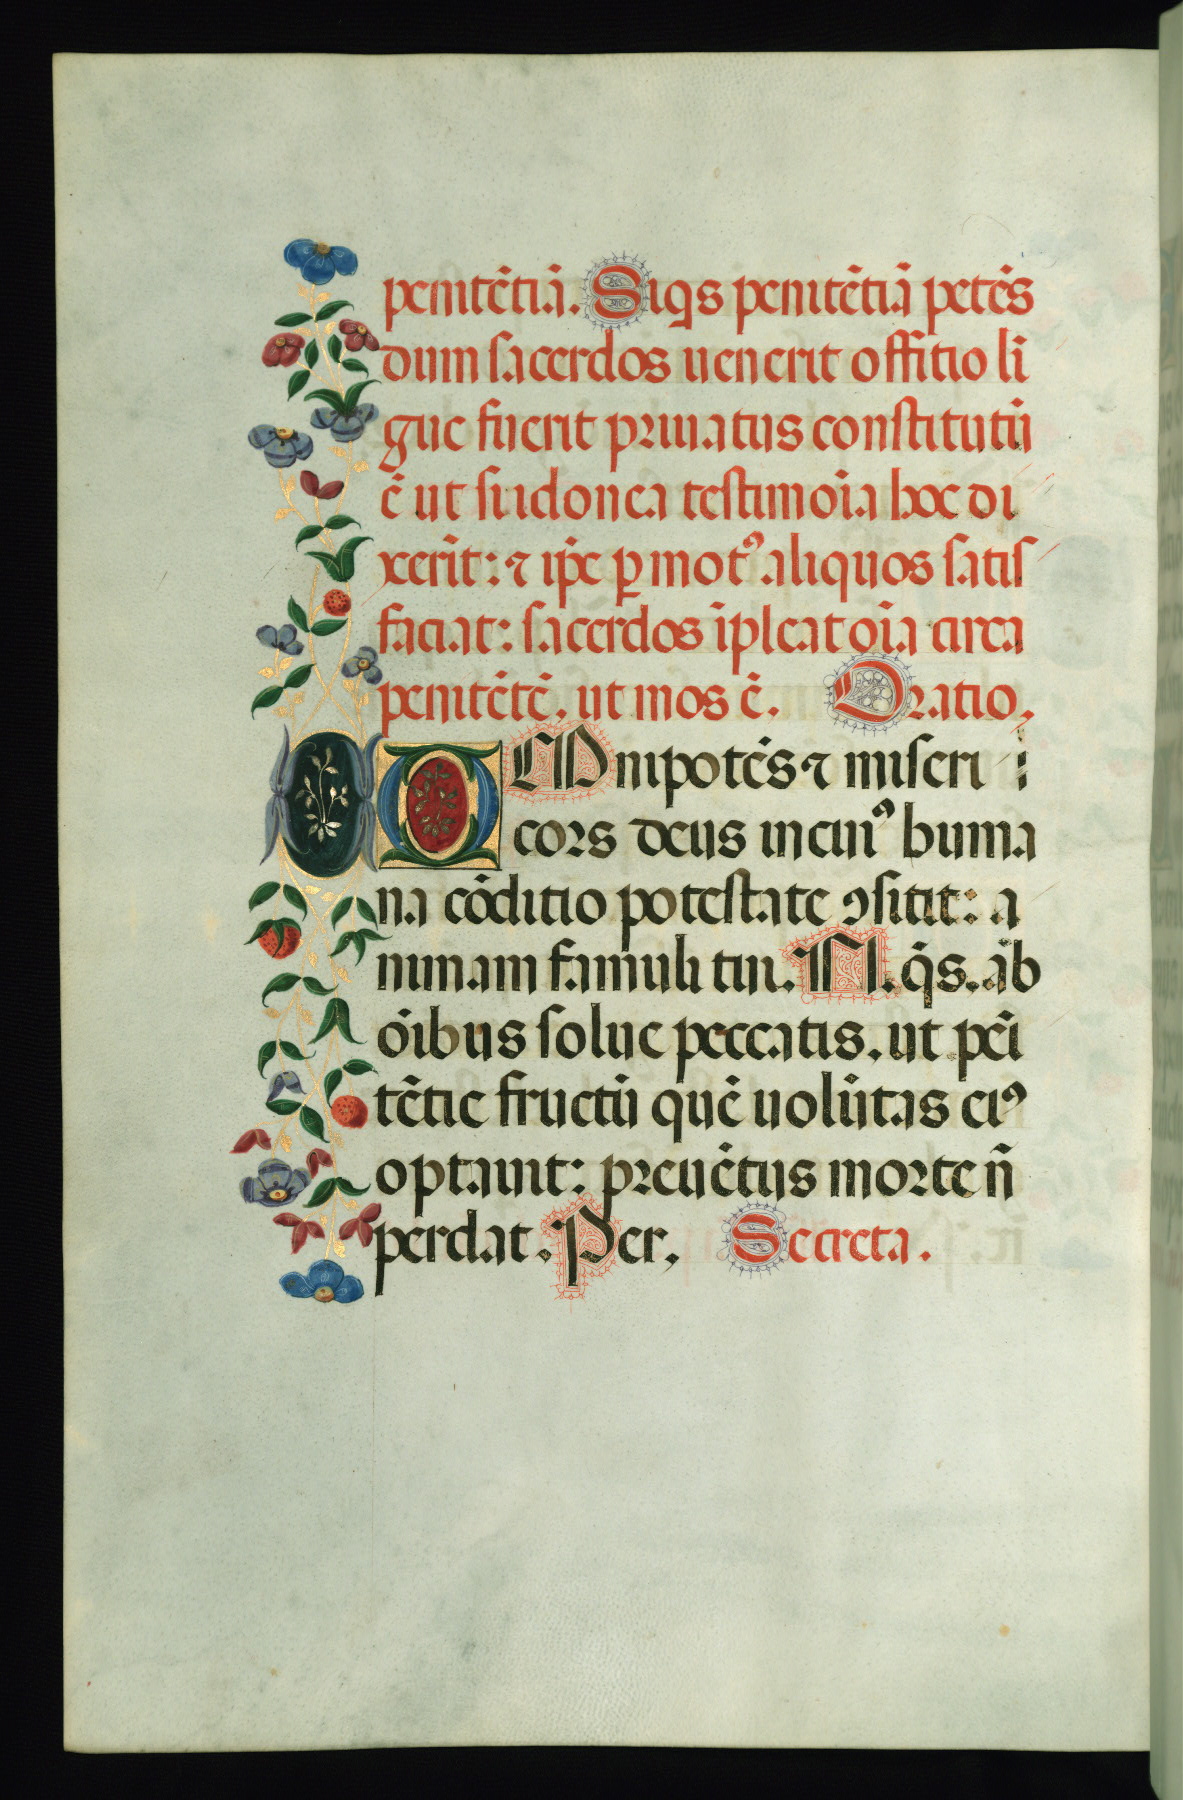 penitētiā. Siqs penitētiā petēs
dum sacerdos uenerit offitio li
gue fuerit priuatus constitutū
ē ut si idonea testimoīa hoc di
xerīt: ⁊ ip̄e ꝑ motꝰ aliquos satis
faciat: sacerdos īpleat oīa circa
penitētē. ut mos ē. Oratio.
OMnipotēs ⁊ miseri
cors deus in cuiꝰ huma
na cōditio potestate ꝯsitit: a
nimam famuli tui. N. q̄s. ab
oībus solue peccatis. ut pēi
tētie fructū quē uolūtas eiꝰ
optauit: preuētus morte n̄
perdat. Per. Secreta.